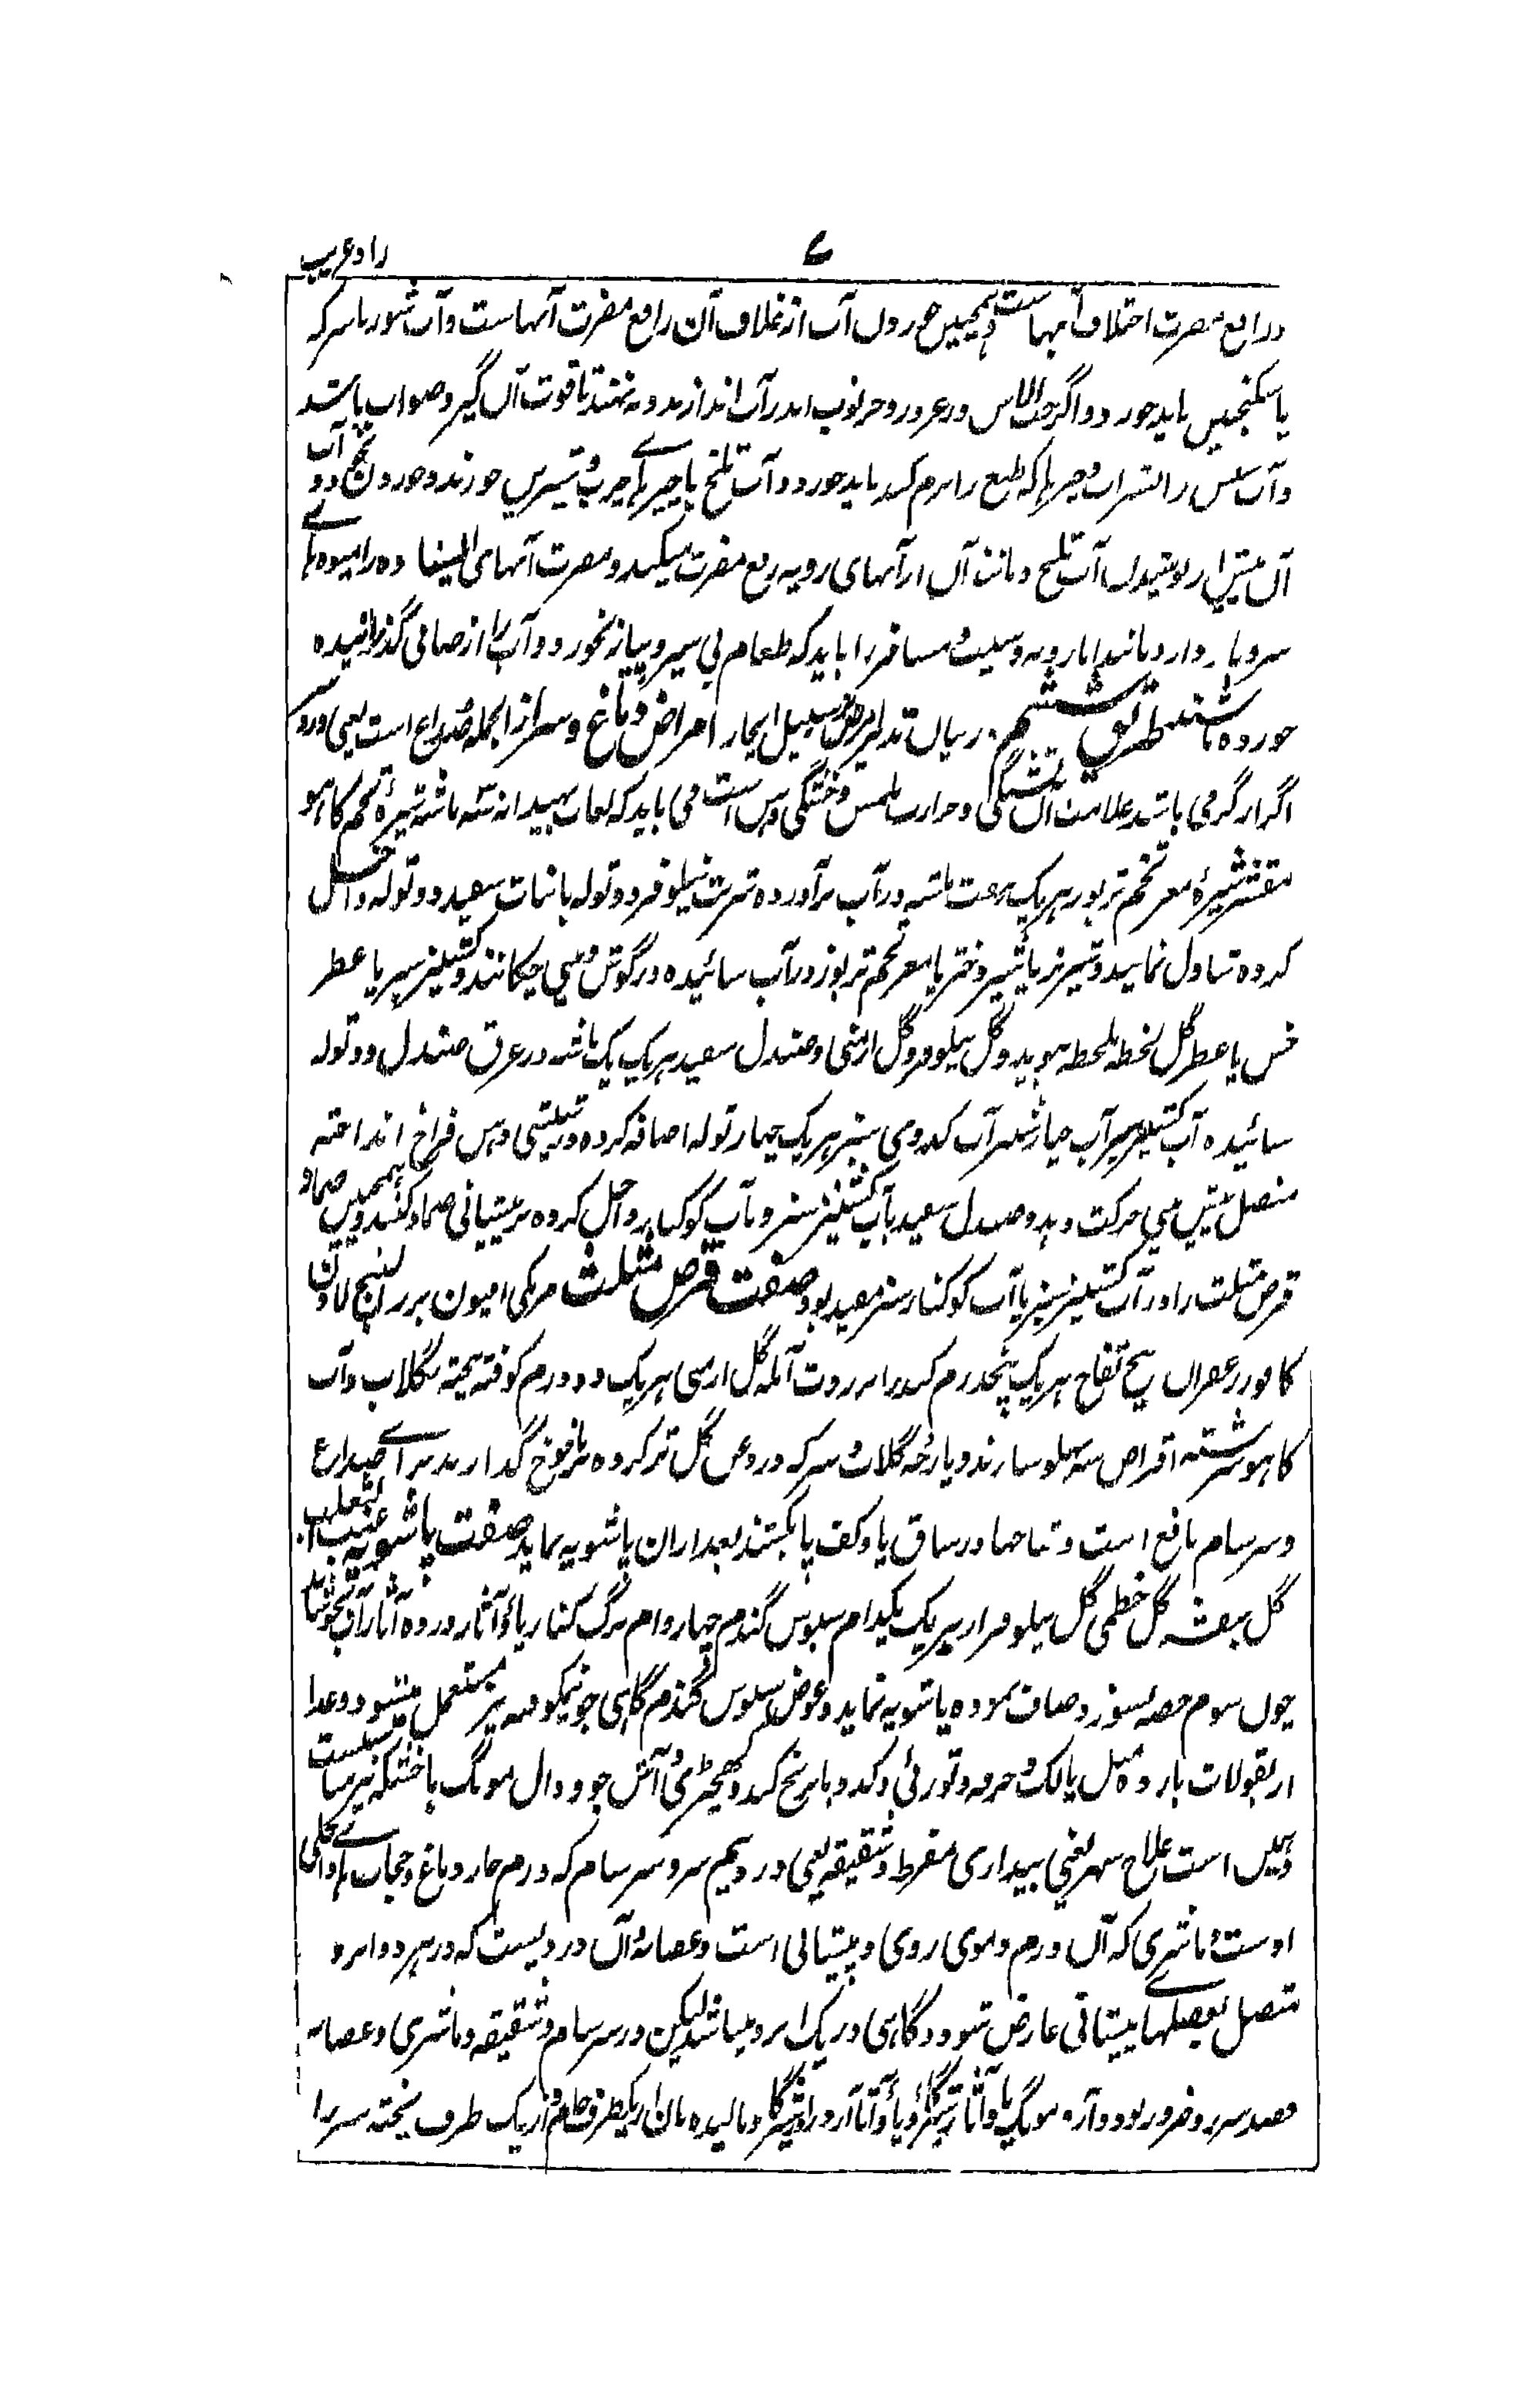 زاد غریب
۷
و دافع مضرت اختلاف آبهاست و همچنین خوردن آب از غلاف آن رافع مضرت آنهاست و آب شور با سرکه
یا سکنجبین باید خورد و اگر حب الآس و زعرور و خرنوب اندر آب اندازند و بنهند تا قوت آن گیرد صواب باشد
و آب را بشراب و چیزها که طبع را نرم کند باید خورد و آب تلخ با چیزهای چرب و شیرین خورند و خوردن نخود آب
آن پیش از نوشیدن آب تلخ و مانند آن از آبهای رویه رفع مضرت میکند و مضرت آبهای را میوه های
سرد باز دارد مانند انار و به و سیب و مسافر را باید که طعام بی سیر و پیاز نخورد و آب را از صافی گذرانیده
خورده باشد طریق ششم در بیان تدابیر مرض بر سبیل ایجاز امراض دماغ و سر از انجمله صداع است یعنی درد سر
اگر از گرمی باشد علامت آن تشنگی و حرارت ملمس و خشکی دهن است می باید که لعاب بهیدانه سه ماشه شیرهٔ تخم کاهو
مقشر شیرهٔ مغز تخم تربوز هر یک هفت ماشه در آب برآورده شربت نیلوفر دو توله یا نبات سفید دو توله داخل
کرده تناول نمایند و شیر بز یا شیر دختر یا مغز تخم تربوز در آب سائیده در گوش و بینی چکانند و کشنیز سبز یا عطر
خس یا عطر گل لحظه بلحظه بویند و گل نیلوفر و گل ارمنی و صندل سفید هر یک یک ماشه در عرق صندل دو توله
سائیده آب کشنیز سبز آب خیار شنبر آب کدوی سبز هر یک چهار توله اضافه کرده در شیشی دهن فراخ انداخته
متصل پیش بینی حرکت دهد و صندل سفید بآب کشنیز سبز و بآب کوکنار و حل کرده بر پیشانی ضماد کنند و همچنین ضماد
قرص مثلث را در آب کشنیز سبز یا آب کوکنار سبز مفید بود صفت قرص مثلث مرمکی افیون بزر البنج لادن
کافور زعفران بیخ تفاح هر یک پنجدرم کندر انزروت آمله گل ارمنی هر یک دو درم کوفته بیخته بگلاب و آب
کاهو سرشته اقراص سه پهلو سازند و پارچه گلاب و سرکه و روغن گل تر کرده بر یافوخ گذارند برای صداع
و سرسام نافع است و شاخها در ساق پا و کف پا بکشند بعد از ان پاشویه نماید صفت پاشویه عنب الثعلب
گل بنفشه گل خطمی گل نیلوفر از هر یک یکدام سبوس گندم چهار دام برگ کنار پاؤ آثار در ده آثار آب بجوشانند
چون سوم حصه بسوزد صاف نموده پاشویه نماید و عوض سبوس گندم گاهی جو نیمکوفته نیز مستعمل میشود و غذا
از بقولات بارده مثل پالک و خرفه و تورئی و کدو با برنج کند و کھچڑی و آش جو و دال مونگ با خشکه نیز مناسبست
و همین است علاج سهر یعنی بیداری مفرط و شقیقه یعنی درد نیم سر و سرسام که ورم حار دماغ و حجاب های داخلی
اوست و ماشری که آن ورم دموی روی و پیشانی است و عصابه و آن دردیست که در هر دو ابرو
متصل بعضلهای پیشانی عارض شود و گاهی در یک ابرو میباشد لیکن در سرسام و شقیقه و ماشری و عصابه
فصد سر رو ضرور بود و آرد مونگ پاؤ آثار مالیده نان از یکطرف خام و از یک طرف پخته سر را